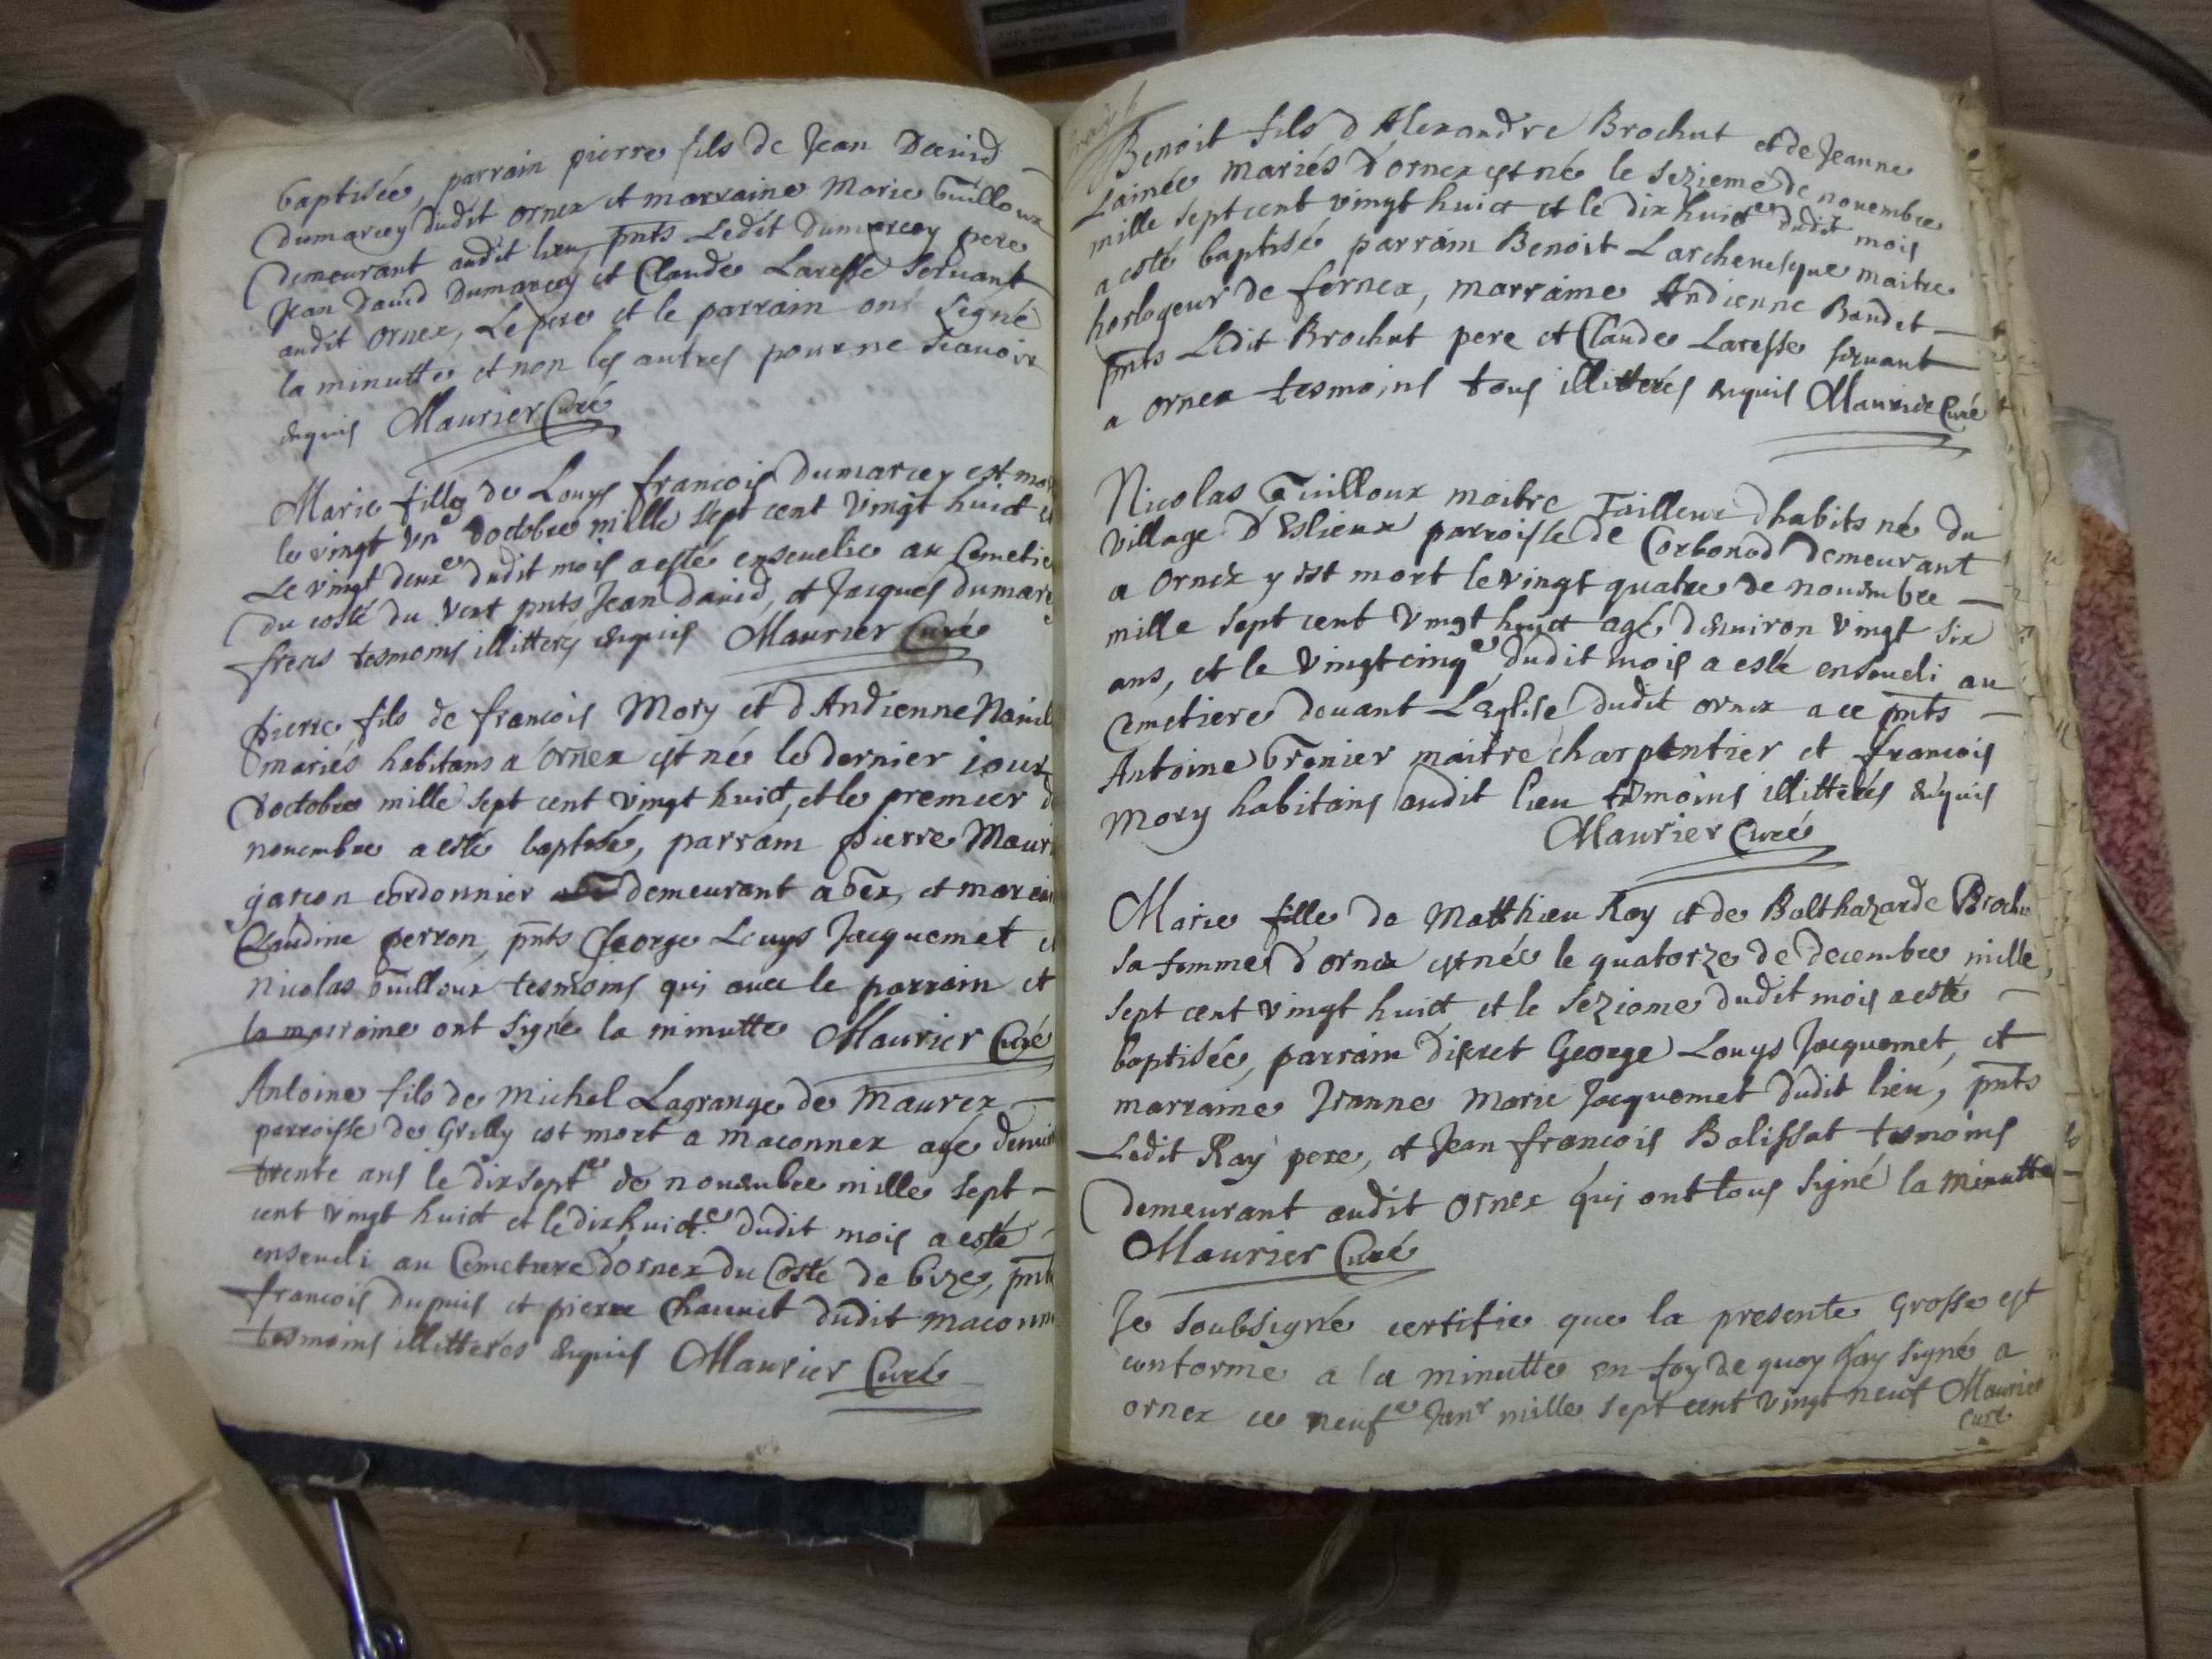 baptisée, parrain pierre fils de Jean David
dumarcey dudit ornex et marraine Marie Guilloux
demeurant audit lieu, pnts Ledit dumarcey pere
Jean david Dumarcey et Claude Laresse servant
audit ornex, Le pere et le parrain ont signé
la minutte et non les autres pour ne scavoir
enquis Maurier Curé
Marie fille de Louys francois Dumarcey est
le vingt un doctobre mille sept cent vingt huict et
Le vingt deuxe dudit mois a esté ensevelie au
du costé du vent pnts Jean David, et Jacques
freres tesmoins illitterés enquis Maurier Curé
pierre fils de francois Mory et d Andienne
mariés habitans a ornex est né le dernier jour
doctobre mille sept cent vingt huict, et le premier
novembre a esté baptisé, parrain pierre
garcon cordonnier demeurant a Gex, et
Claudine perron, pnts George Louys Jacquemet et
nicolas Guilloux tesmoins qui avec le parrain et
la marraine ont signé la minutte Maurier Curé
Antoine fils de michel Lagrange de maurex
parroisse de Grilly est mort a maconnex agé
trente ans le dixsepte de novembre mille sept
cent vingt huict et le dixhuicte dudit mois a esté
enseveli au Cemetiere d'ornex du Costé de bize, pnts
francois dupuis et pierre dudit
tesmoins illitterés enquis Maurier Curé
Benoit fils d Alexandre Brochut et de Jeanne
Lainée mariés d'ornex est né le sezieme de novembre
mille sept cent vingt huict et le dix huicte dudit mois
a esté baptisé parrain Benoit Larchevesque maitre
horlogeur de fernex, marraine Andienne Baudet
pnts Ledit Brochut pere et Claude Laresse servant
a ornex tesmoins tous illitterés enquis Maurier Curé
Nicolas Guilloux maitre Tailleur dhabits né du
village d'Eslieux parroisse de Corbonod demeurant
a ornex y est mort le vingt quatre de novembre
mille sept cent vingt huict agé denviron vingt six
ans, et le vingtcinqe dudit mois a esté enseveli au
Cemetiere devant L'eglise dudit ornex a ce pnts
Antoine Grenier maitre charpentier et francois
mory habitans audit lieu tesmoins illitterés enquis
Maurier Curé
Marie fille de Matthieu Ray et de Balthazarde
sa femme d'ornex est née le quatorze de decembre mille
sept cent vingt huict et le sezieme dudit mois a esté
baptisée, parrain discret George Louys Jacquemet, et
marraine Jeanne Marie Jacquemet dudit lieu, pnts
Ledit Ray pere, et Jean francois Balissat tesmoins
demeurant audit ornex qui ont tous signé la minutte
Maurier Curé
Je soubsigné certifie que la presente Grosse est
conforme a la minutte en foy de quoy Jay signé a
ornex ce neufe Janr mille sept cent vingt neuf Maurier
Curé